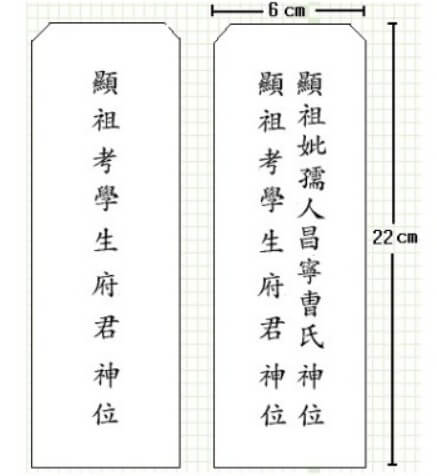 6 cm
顯祖考學生府君 神位
顯祖妣孺人昌寧曺氏 神位
顯祖考學生府君 神位
22 cm